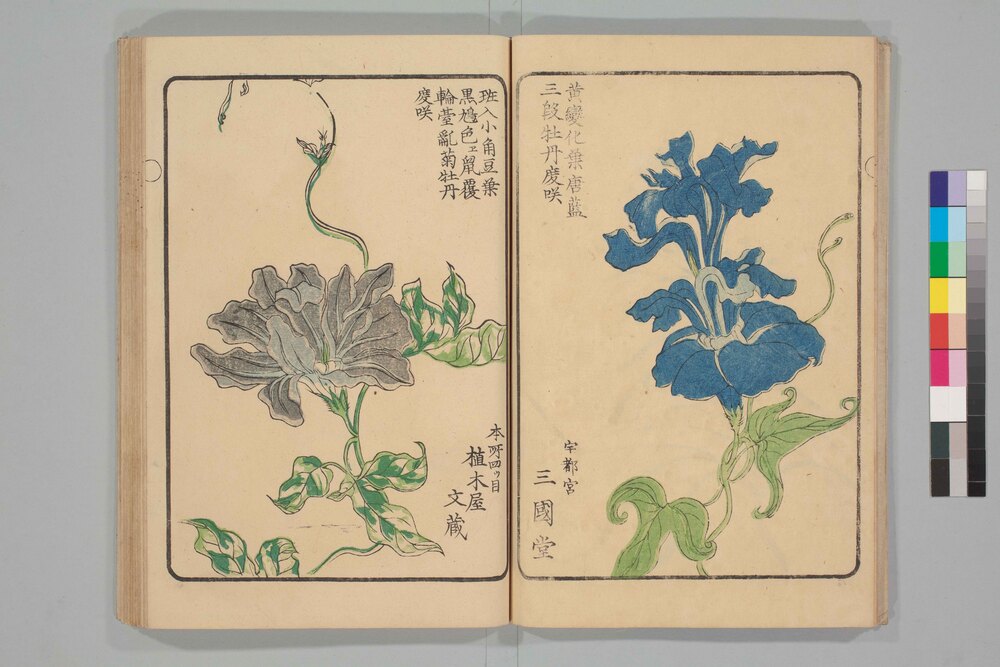 黄變化葉唐藍
三段牡丹度咲
宇都宮
三國堂
斑入小角豆葉
黒鳩色ェ鼠覆
輪臺亂菊牡丹
度咲
本所四ッ目
植木屋
文蔵